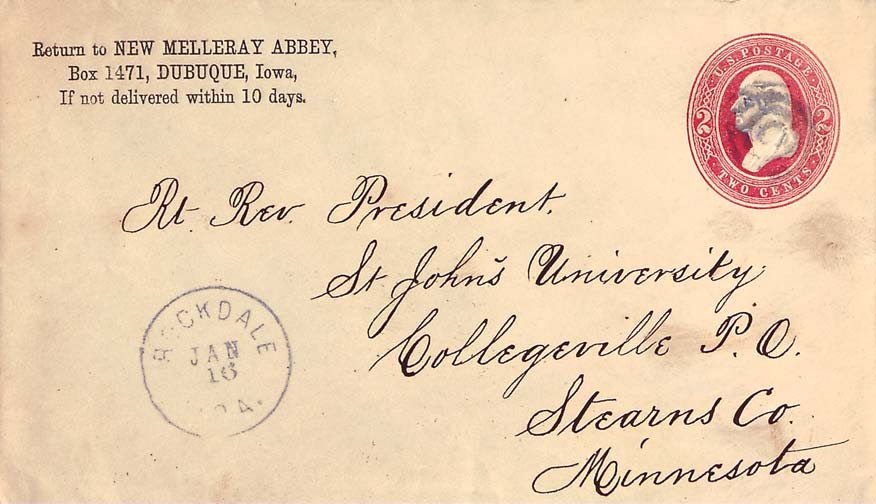 Return to NEW MELLERAY ABBEY,
Box 1471, DUBUQUE, Iowa,
If not delivered within 10 days.
U.S. POSTAGE
2 2
TWO CENTS
Rt. Rev. President.
St John's University
Collegeville P. O.
Stearns Co.
Minnesota
ROCKDALE
JAN
16